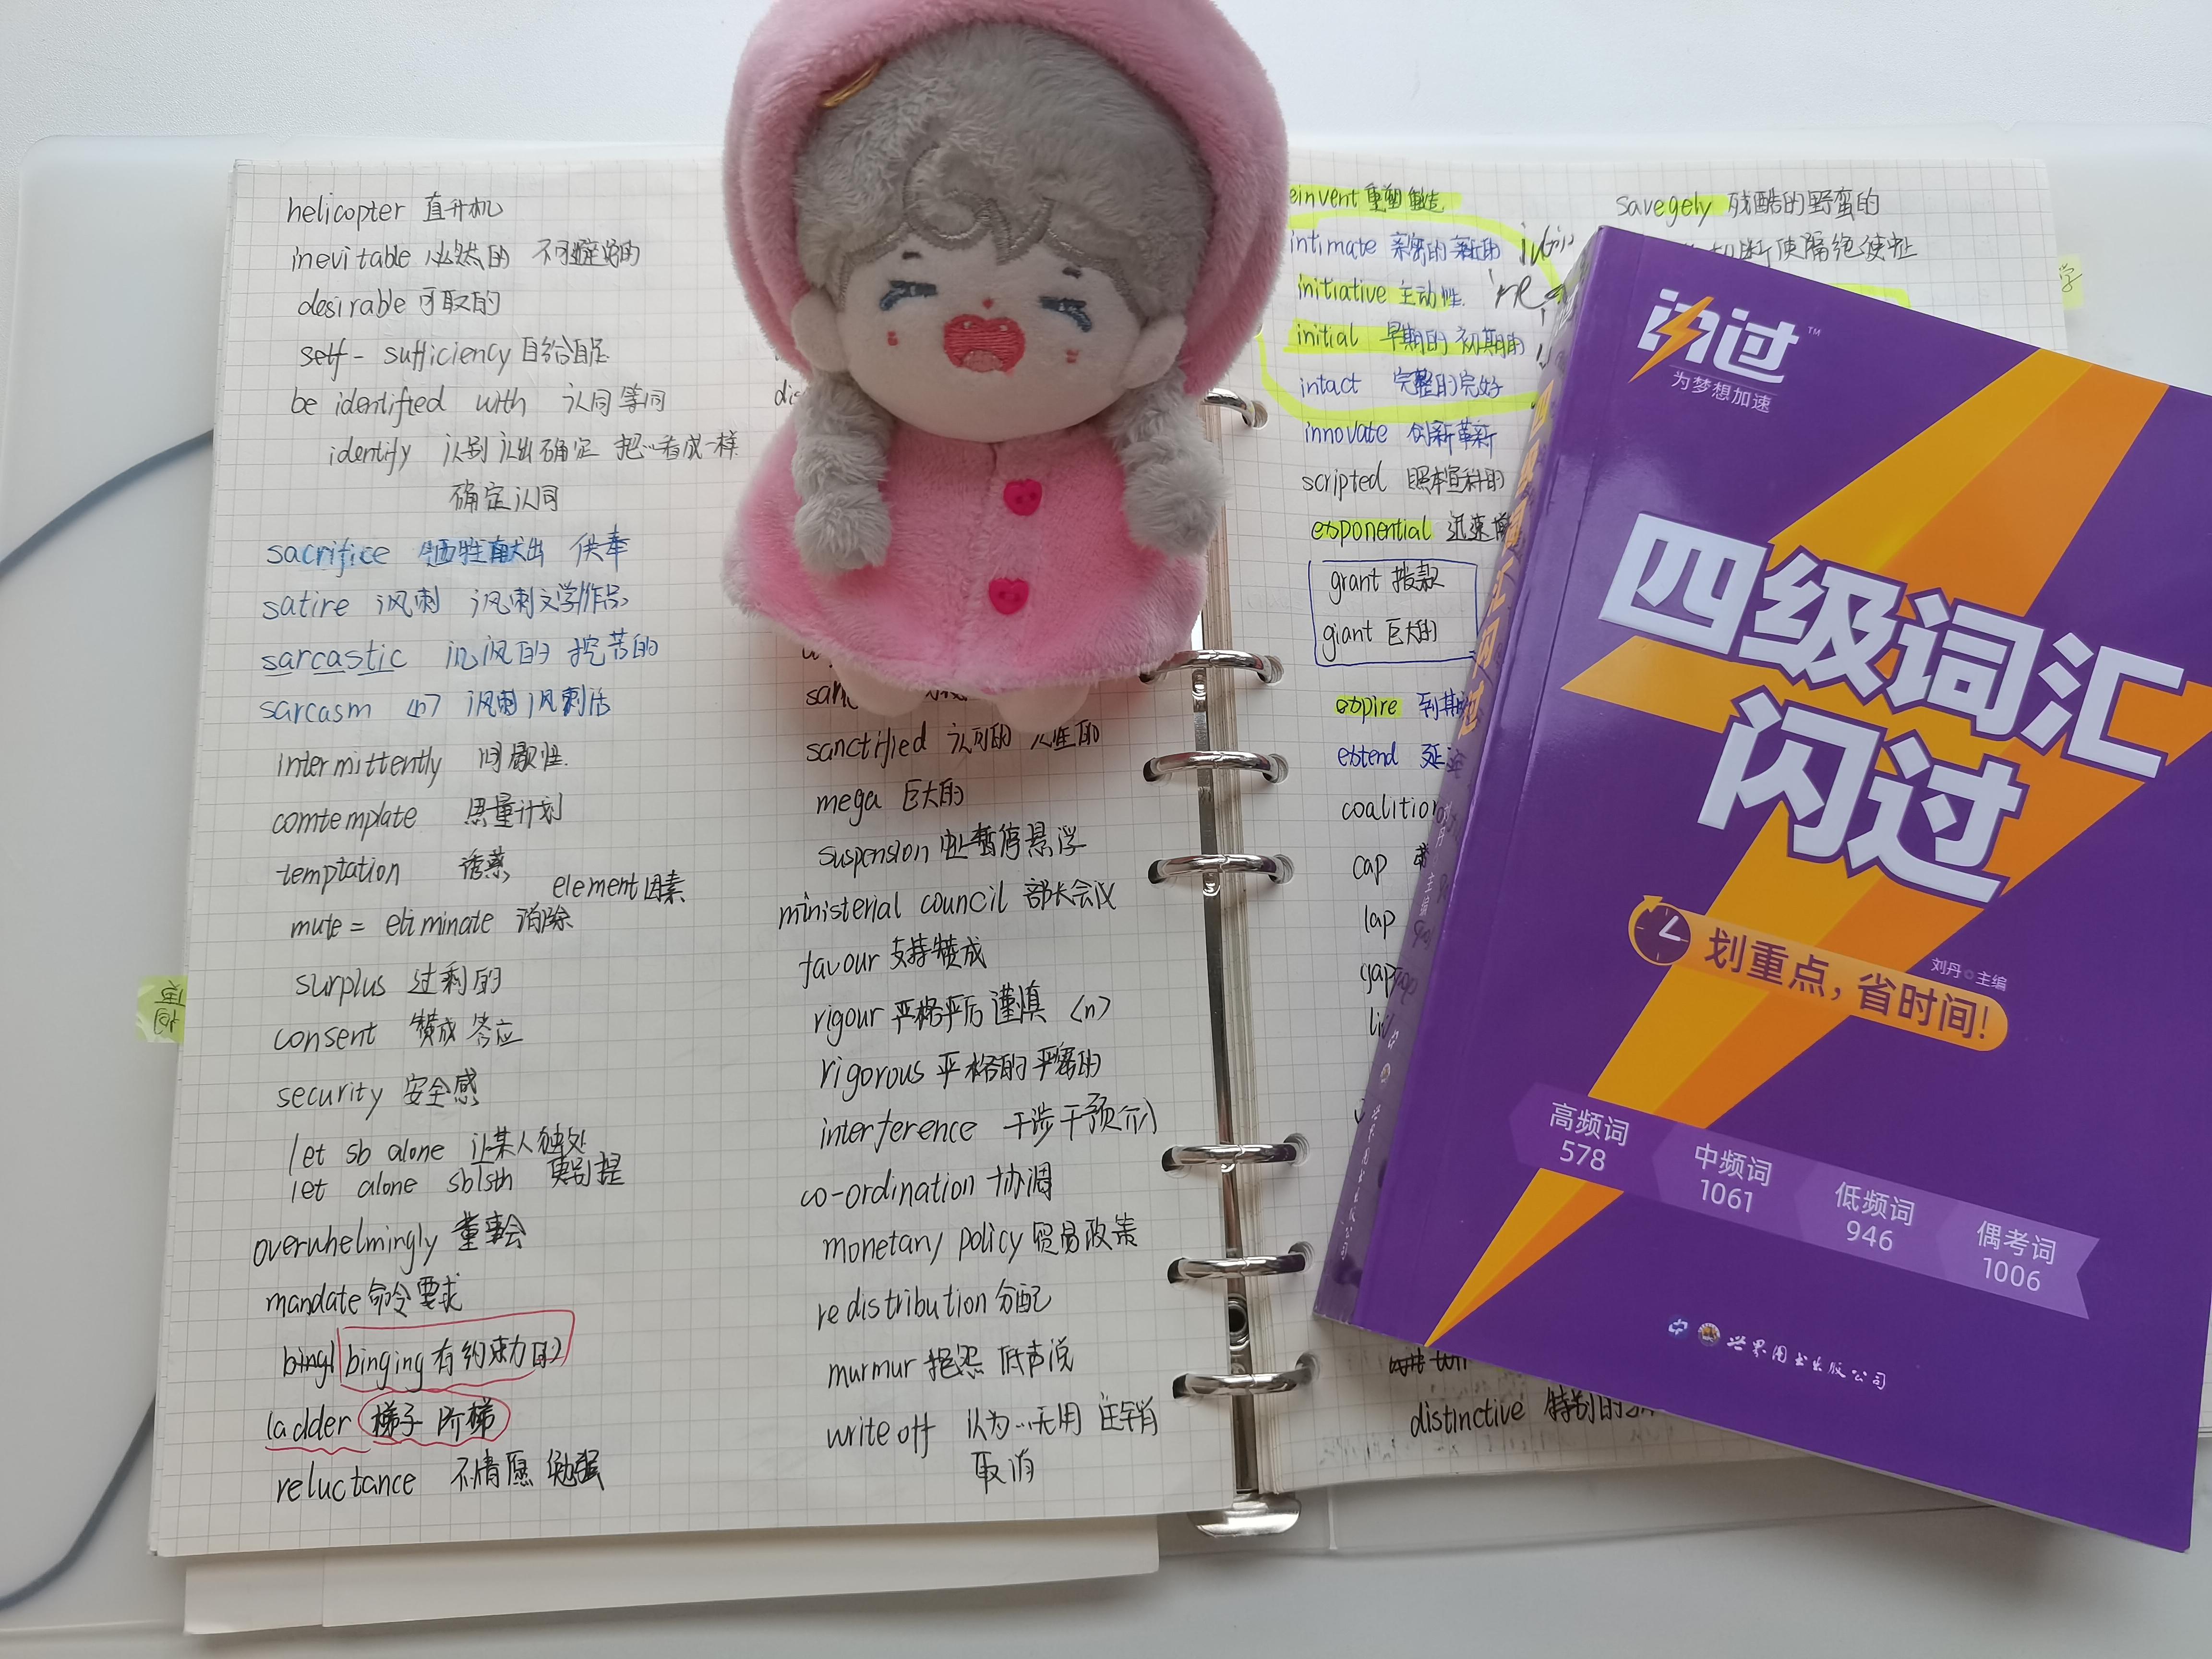 helicopter 直升机
inevitable 必然的 不可避免的
desirable 可取的
self-sufficiency 自给自足
be identified with 认同等同
identify 识别认出确定 把…看成一样
确定认同
sacrifice 牺牲献出 供奉
satire 讽刺 讽刺文学作品
sarcastic 讥讽的 挖苦的
sarcasm <n> 讽刺讽刺话
intermittently 间歇性
comtemplate 思量计划
temptation 诱惑
element因素
mute = eliminate 消除
surplus 过剩的
consent 赞成 答应
security 安全感
let sb alone 让某人独处
let alone sb/sth 更别提
overwhelmingly 董事会
mandate 命令 要求
binging 有约束力的
ladder 梯子 阶梯
reluctance 不情愿 勉强
单词
sanctified 认可的
mega 巨大的
suspension 暂停悬浮
ministerial council 部长会议
favour 支持赞成
rigour 严格严厉 谨慎 <n>
rigorous 严格的 严密的
interference 干涉干预介入
co-ordination 协调
monetary policy 贸易政策
redistribution 分配
murmur 抱怨 低声说
write off 认为…无用 注销
取消
einvent 重塑重造
intimate 亲密的亲近的
initiative 主动性
initial 早期的 初期的
intact 完整的完好
innovate 创新革新
scripted 照本宣科的
exponential 迅速
grant 拨款
giant 巨大的
expire 到期
extend 延
coalition
cap
lap
gap
distinctive 特别的
savegely 残酷的野蛮的
切断使隔绝使
学
闪过™
为梦想加速
四级词汇
闪过
划重点，省时间！
刘丹 主编
高频词
578
中频词
1061
低频词
946
偶考词
1006
世界图书出版公司